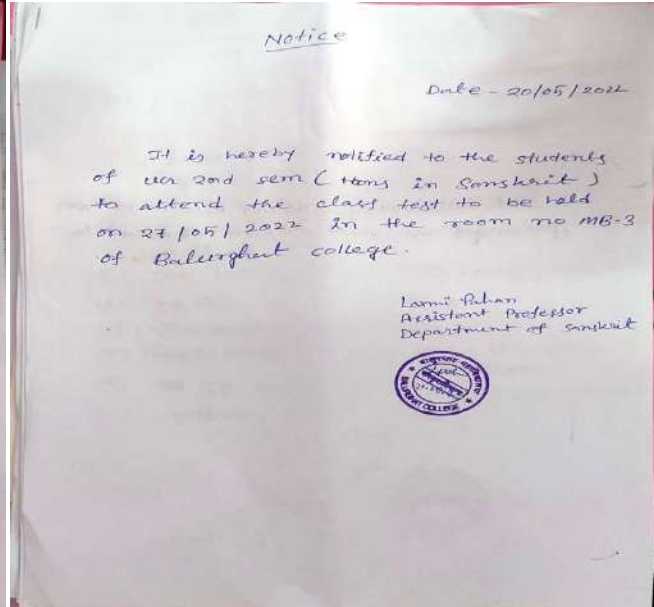 Notice
Date - 20/05/2022
It is hereby notified to the students
of UG 2nd sem (Hons in Sanskrit)
to attend the class test to be held
on 27/05/2022 in the room no MB-3
of Balurghat college.
Laxmi Pahan
Assistant Professor
Department of Sanskrit
BALURGHAT COLLEGE